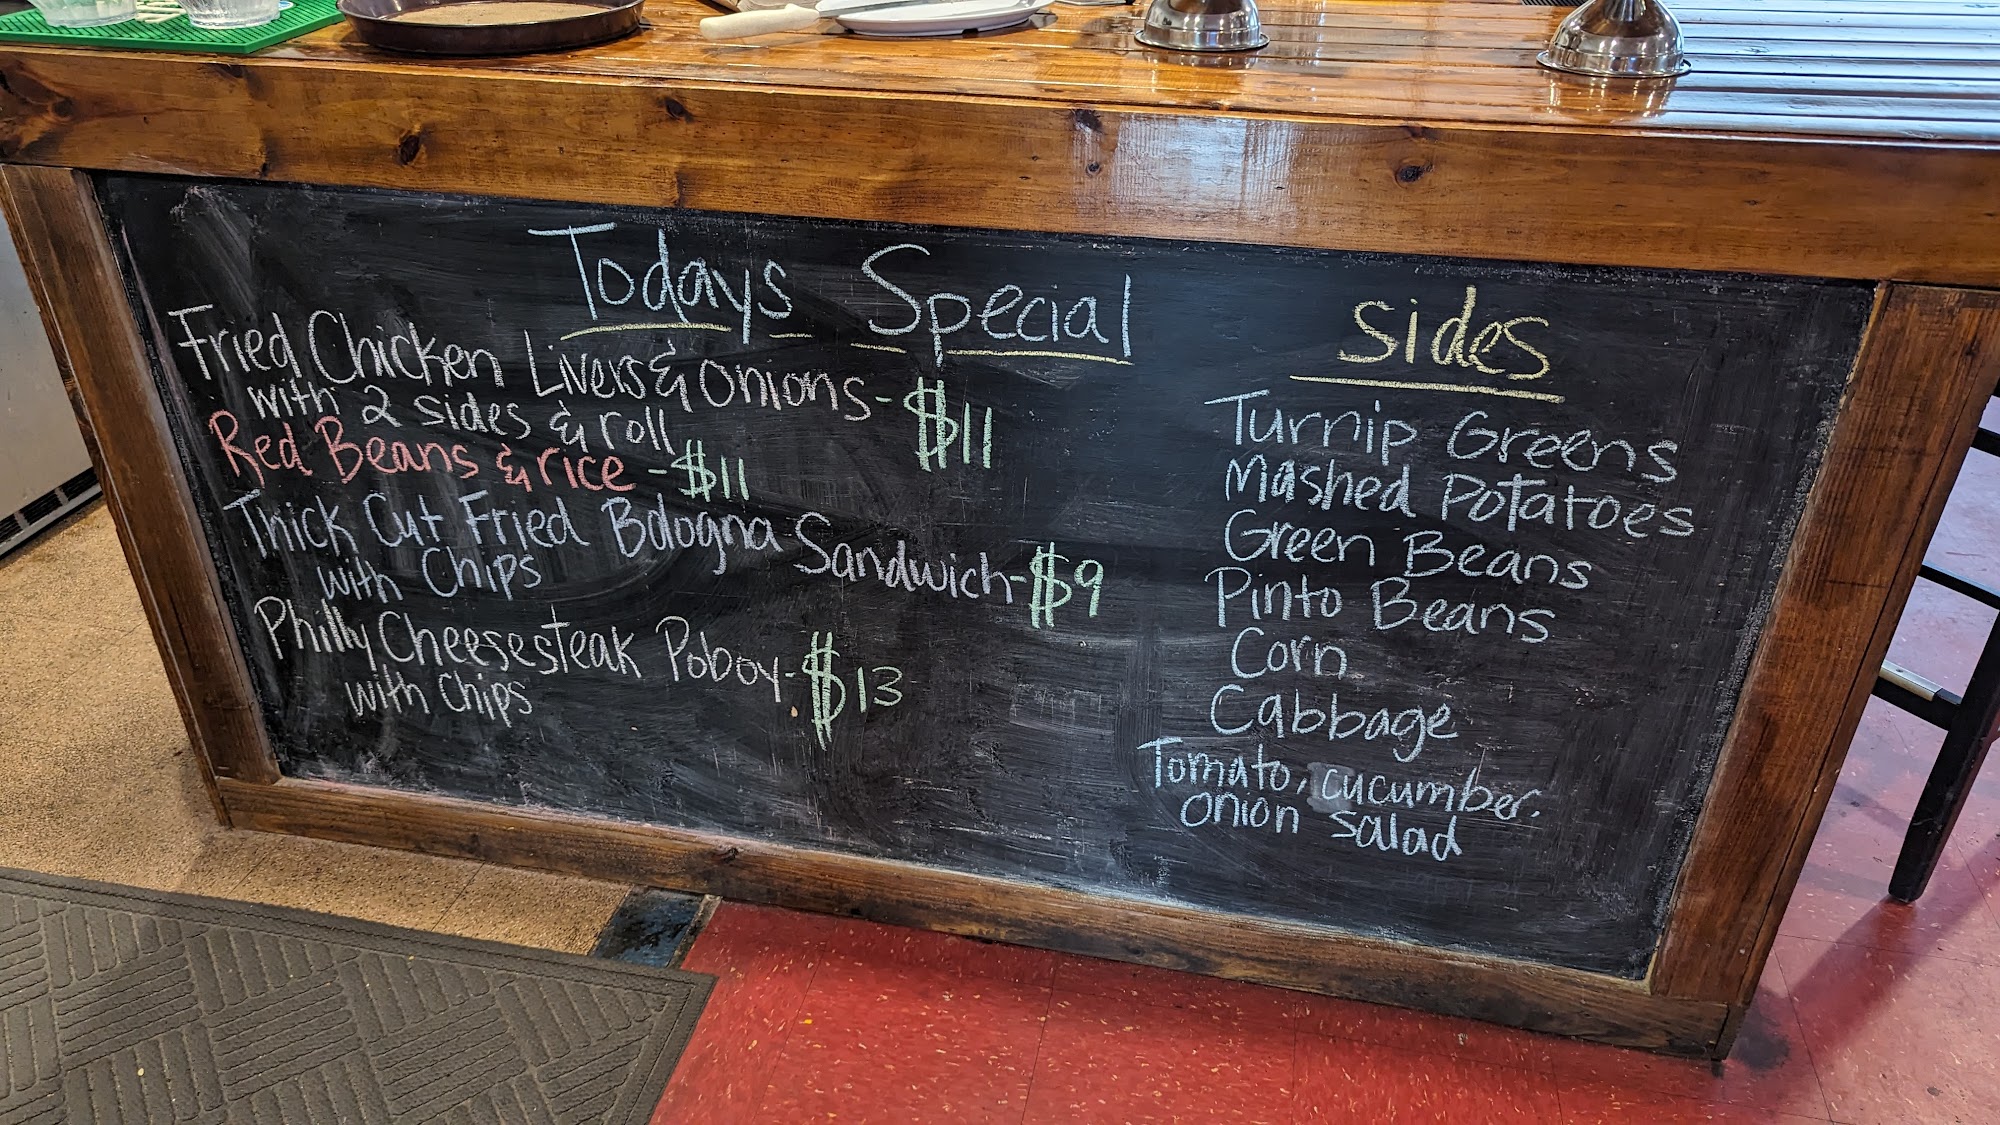 Todays Special
Fried Chicken Livers & Onions - $11
with 2 sides & roll
Red Beans & rice - $11
Thick Cut Fried Bologna Sandwich - $9
with Chips
Philly Cheesesteak Poboy - $13
with Chips
Sides
Turnip Greens
Mashed Potatoes
Green Beans
Pinto Beans
Corn
Cabbage
Tomato, cucumber.
onion salad